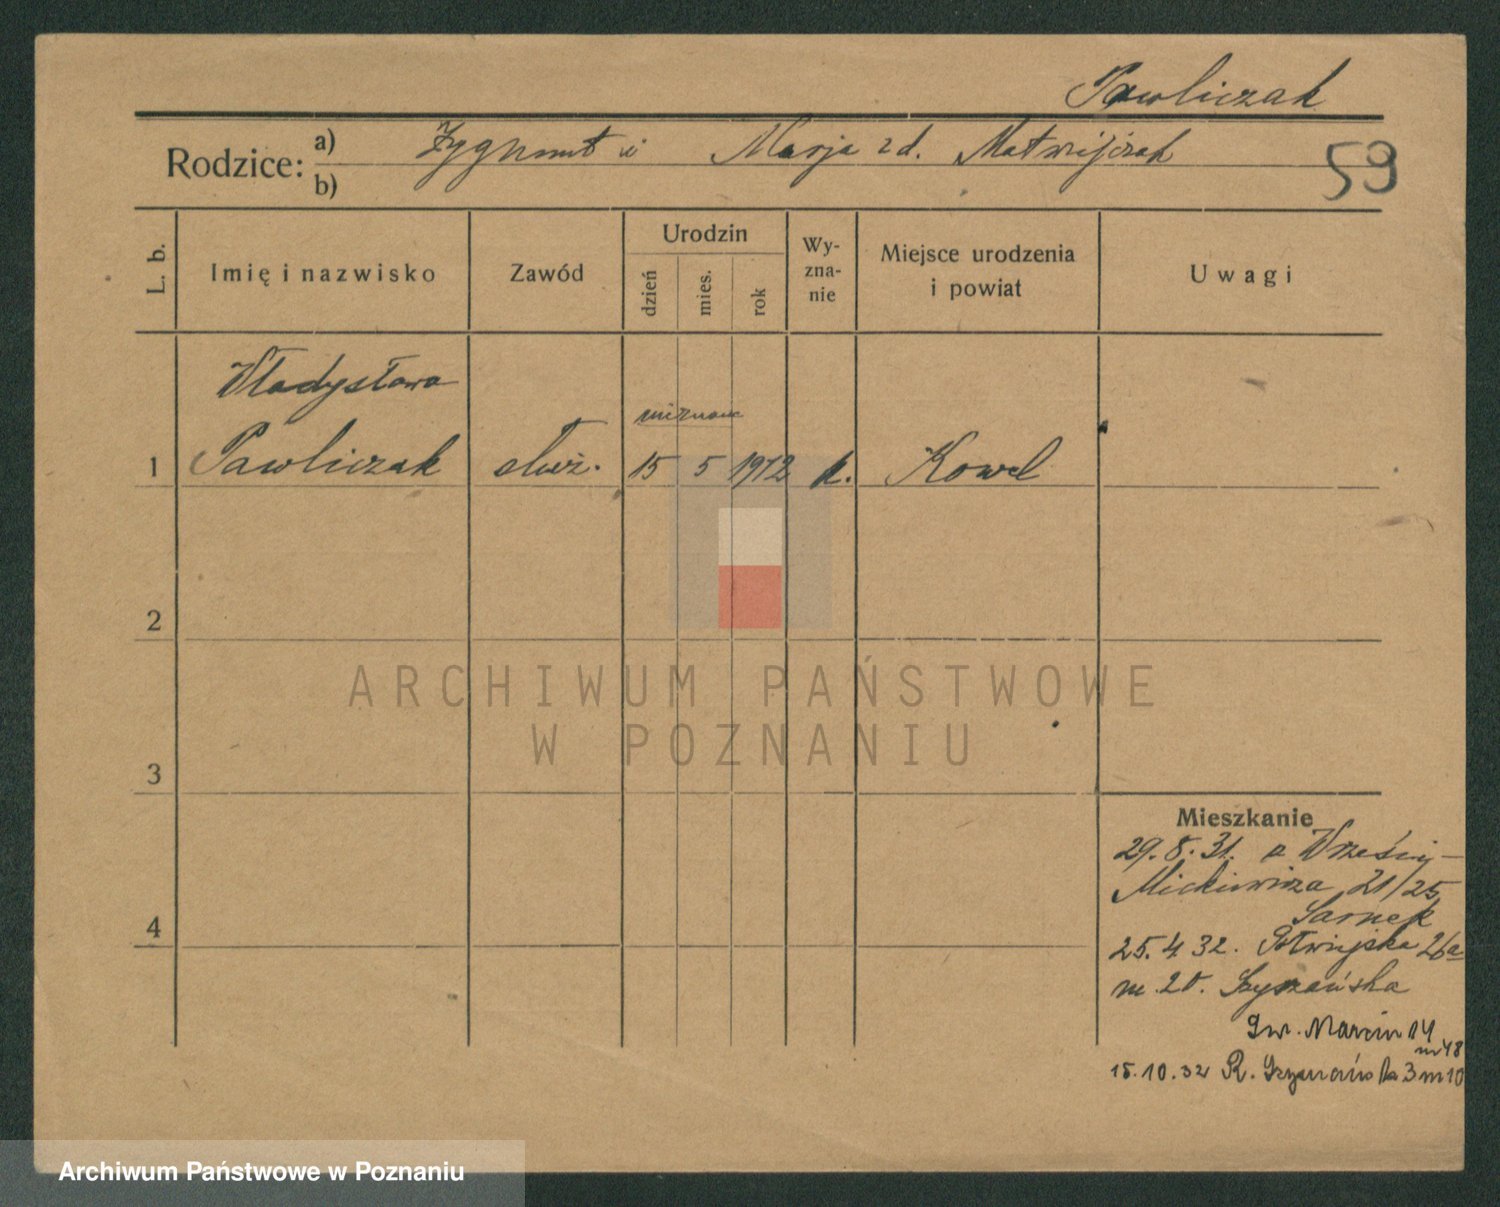 Pawliczak
Rodzice: a) Zygmunt i Marja zd. Matwijczak
b)
59
L. b.
Imię i nazwisko
Zawód
Urodzin
dzień
mies.
rok
Wy-
zna-
nie
Miejsce urodzenia
i powiat
Uwagi
Władysława
1 Pawliczak służ. 15 5 1912 k. Kowel
2
3
4
ARCHIWUM PAŃSTWOWE
W POZNANIU
Mieszkanie
29.8.31. z Wrześni
Mickiewicza 21/25
Sarnek
25.4.32. 26a
m. 20.
Św. Marcin 14
m 48
15.10.32 R. Szymańska 3 m 10
Archiwum Państwowe w Poznaniu